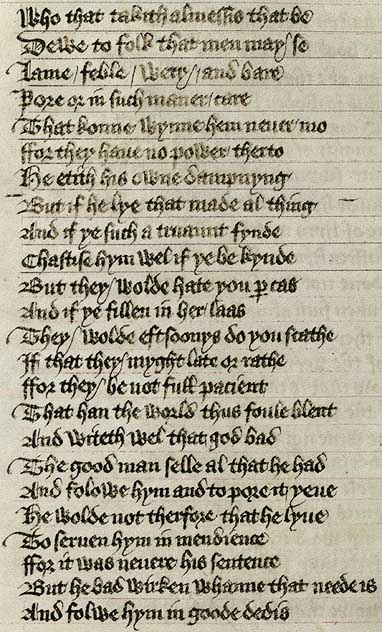 Who that takith almessis that be
Dewe to folk that men may se
Lame / feble / wery / and bare
Pore or in such maner care
That konne wynne hem neuer mo
ffor they haue no power therto
He etith his owne dampnyng
But if he lye that made al thing
And if ye such a truaunt fynde
Chastise hym wel if ye be kynde
But they wolde hate you ꝑ cas
And if ye fillen in her laas
They wolde eftsoonys do you scathe
If that they myght late or rathe
ffor they be not full pacient
That han the world thus foule blent
And witeth wel that god bad
The good man selle al that he had
And folowe hym and to pore it yeue
He wolde not therfore that he lyue
To seruen hym in mendience
ffor it was neuere his sentence
But he bad wirken whanne that neede is
And folwe hym in goode dedis